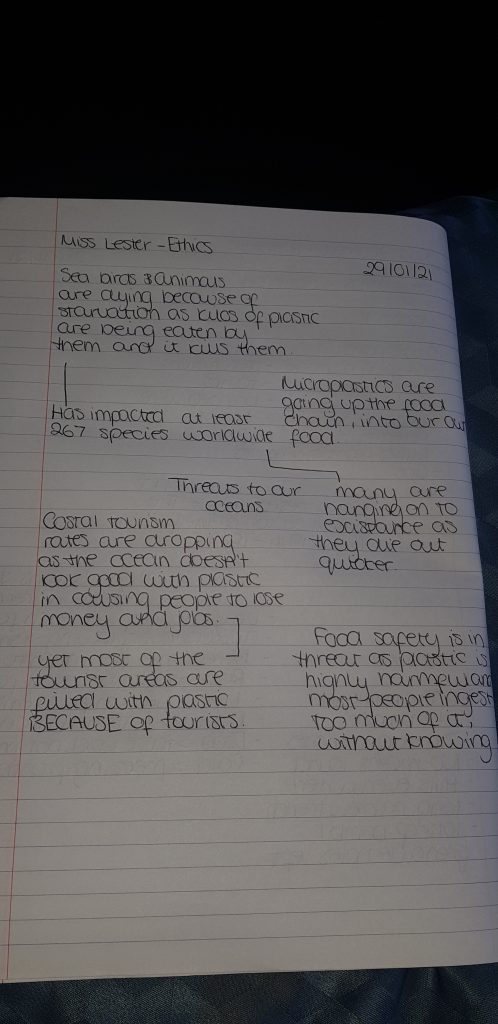 Miss Lester - Ethics
29/01/21
Sea birds & animals
are dying because of
starvation as kilos of plastic
are being eaten by
them and it kills them.
Has impacted at least
267 species worldwide
Microplastics are
going up the food
chain, into our own
food.
many are
hanging on to
existance as
they die out
quicker.
Threats to our
oceans
Costal tourism
rates are dropping
as the ocean doesn't
look good with plastic
in causing people to lose
money and jobs.
yet most of the
tourist areas are
filled with plastic
BECAUSE of tourists.
Food safety is in
threat as plastic is
highly harmful and
most people ingest
too much of it,
without knowing